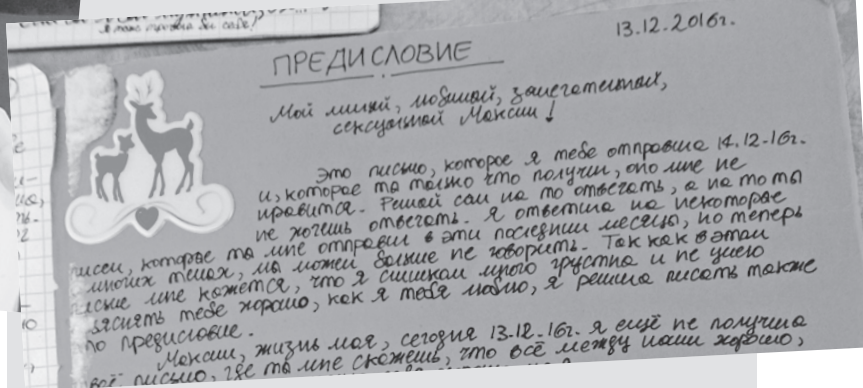 13.12.2016г.
ПРЕДИСЛОВИЕ
Мой милый, любимый, замечательный,
сексуальной Максим!
Это письмо, которое я тебе отправила 14.12-16г.
и, которое ты только что получил, оно мне не
нравится. Решай сам на то отвечать, а на то ты
не хочешь отвечать. Я ответила на некоторые
писем, которые ты мне отправил в эти последнии месяцы, но теперь
многих темах, мы можем больше не говорить. Так как в этом
письме мне кажется, что я слишком много грустна и не умею
яснять тебе хорошо, как я тебя люблю, я решила писать также
то предисловие.
Максим, жизнь моя, сегодня 13-12-16г. я ещё не получила
всё письмо, где ты мне скажешь, что всё между нами хорошо,